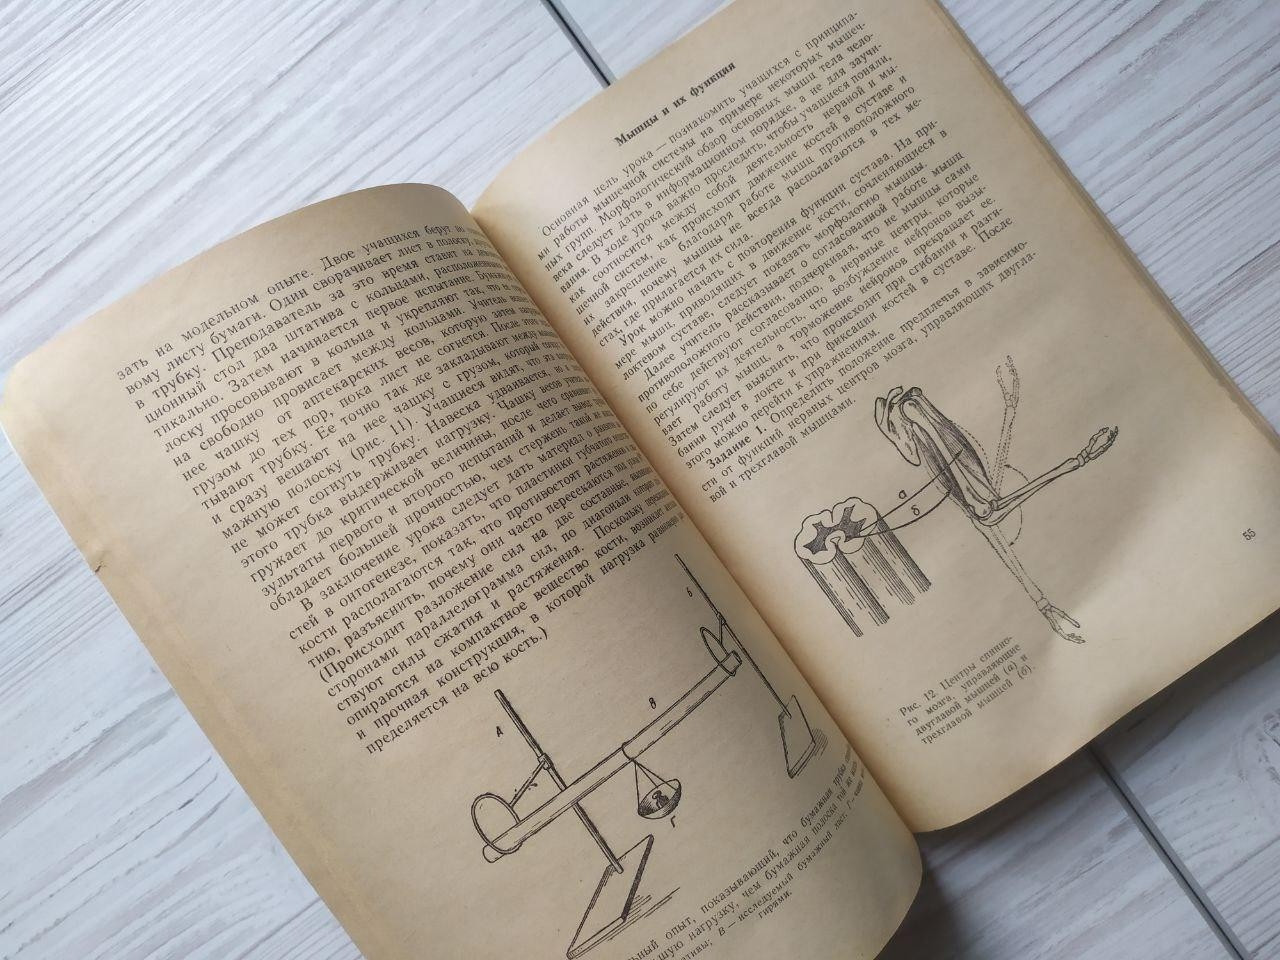 зать на модельном опыте. Двое учащихся берут по
вому листу бумаги. Один сворачивает лист в полоску,
в трубку. Преподаватель за это время ставит на
ционный стол два штатива с кольцами,
тикально. Затем начинается первое испытание.
лоску просовывают в кольца и укрепляют так, что
на свободно провисает между кольцами. Учитель
нее чашку от аптекарских весов, которую затем
грузом до тех пор, пока лист не согнется. После этого
тывают трубку. Ее точно так же закладывают между
и сразу вешают на нее чашку с грузом, который
мажную полоску (рис. 11). Учащиеся видят, что эта
не может согнуть трубку. Навеска удваивается, но и
этого трубка выдерживает нагрузку. Чашку весов
гружает до критической величины, после чего сравнивает
зультаты первого и второго испытаний и делает вывод
обладает большей прочностью, чем стержень такой же
В заключение урока следует дать материал о
стей в онтогенезе, показать, что пластинки губчатого
кости располагаются так, что противостоят растяжению
тию, разъяснить, почему они часто пересекаются под
(Происходит разложение сил на две составные,
сторонами параллелограмма сил, по диагонали которого
ствуют силы сжатия и растяжения. Поскольку
опираются на компактное вещество кости, возникает
и прочная конструкция, в которой нагрузка равномерно
пределяется на всю кость.)
А
Б
В
Г
опыт, показывающий, что бумажная трубка
нагрузку, чем бумажная полоска той же
В — исследуемый бумажный лист; Г —
гирями.
Мышцы и их функция
Основная цель урока — познакомить учащихся с принципа-
ми работы мышечной системы на примере некоторых мышеч-
ных групп. Морфологический обзор основных мышц тела чело-
века следует дать в информационном порядке, а не для заучи-
вания. В ходе урока важно проследить, чтобы учащиеся поняли,
как соотносится между собой деятельность нервной и мы-
шечной систем, как происходит движение костей в суставе и
их закрепление благодаря работе мышц противоположного
действия, почему мышцы не всегда располагаются в тех ме-
стах, где прилагается их сила.
Урок можно начать с повторения функции сустава. На при-
мере мышц, приводящих в движение кости, сочленяющиеся в
локтевом суставе, следует показать морфологию мышцы.
Далее учитель рассказывает о согласованной работе мышц
противоположного действия, подчеркивая, что не мышцы сами
по себе действуют согласованно, а нервные центры, которые
регулируют их деятельность, что возбуждение нейронов вызы-
вает работу мышц, а торможение нейронов прекращает ее.
Затем следует выяснить, что происходит при сгибании и разги-
бании руки в локте и при фиксации костей в суставе. После
этого можно перейти к упражнениям.
Задание 1. Определить положение предплечья в зависимо-
сти от функций нервных центров мозга, управляющих двугла-
вой и трехглавой мышцами.
а
б
Рис. 12. Центры спинно-
го мозга, управляющие
двуглавой мышцей (а) и
трехглавой мышцей (б).
55